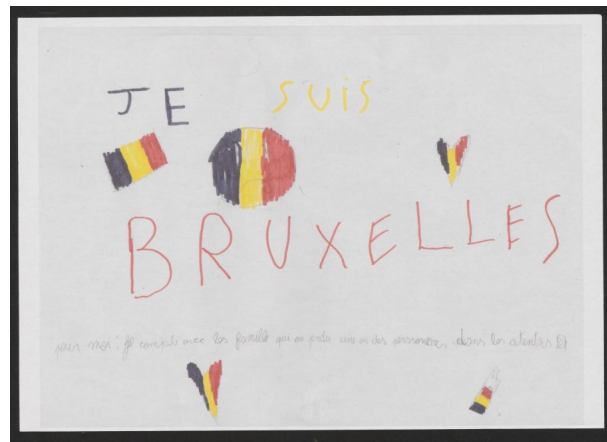 JE SUIS
BRUXELLES
pour moi : je compati avec les famille qui on perdu une ou des personnes, dans les atentas